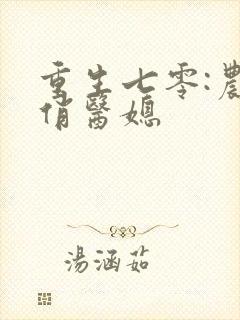 重生七零:農
俏醫媳
湯涵茹